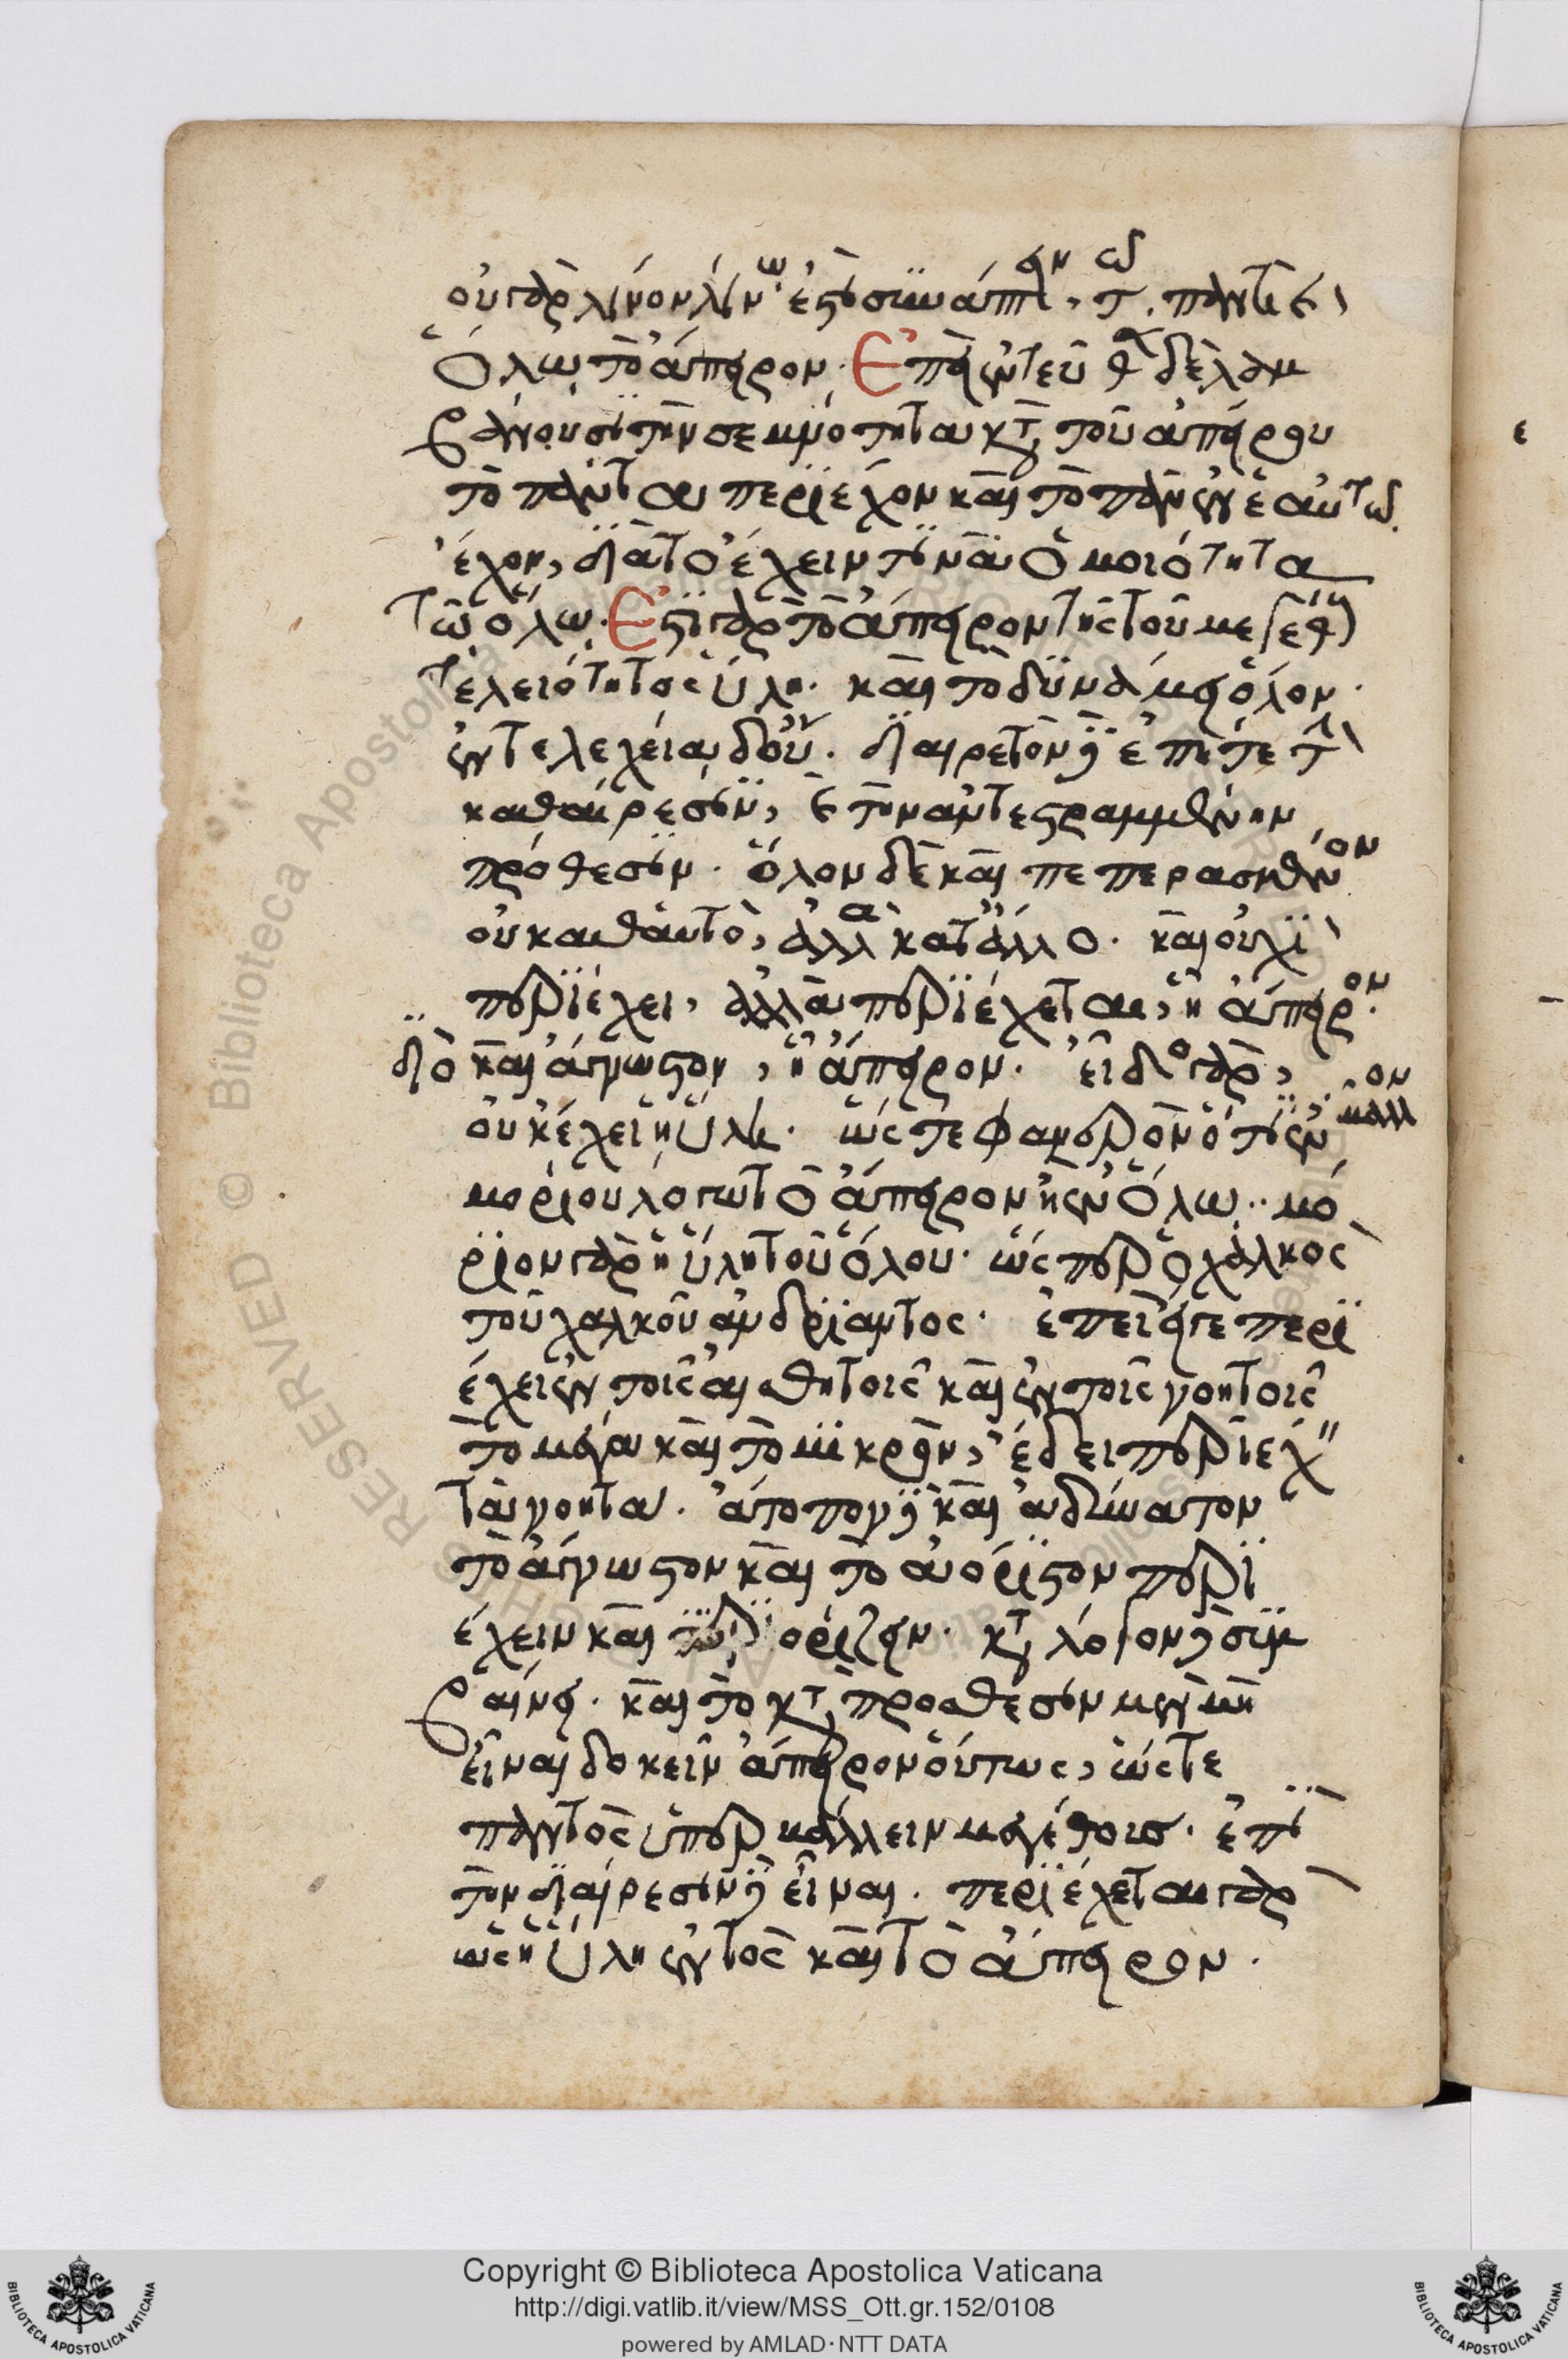 οὐ γὰρ λίνον λίνῳ ἐστὶ συνάπτειν, τῷ παντὶ καὶ
ὅλῳ τὸ ἄπειρον. Ἐπεὶ ἐντεῦθεν δὲ λαμ
βάνουσι τὴν σεμνότητα κατὰ τοῦ ἀπείρου
τὸ πάντα περιέχον καὶ τὸ πᾶν ἐν ἑαυτῷ
ἔχον, διὰ τὸ ἔχειν τινὰ ὁμοιότητα
τῷ ὅλῳ. Ἔστι γὰρ τὸ ἄπειρον τῆς τοῦ μεγέθους
τελειότητος ὕλη. καὶ τὸ δυνάμει ὅλον.
ἐντελεχείᾳ δ' οὔ. διαιρετὸν δ' ἐπί τε τὴν
καθαίρεσιν, καὶ τὴν ἀντεστραμμένην
πρόθεσιν. ὅλον δὲ καὶ πεπερασμένον
οὐ καθ' αὑτὸ, ἀλλὰ κατ' ἄλλο. καὶ οὐ
περιέχει, ἀλλὰ περιέχεται, ᾗ ἄπειρον.
διὸ καὶ ἄγνωστον, ᾗ ἄπειρον. εἶδος γὰρ,
οὐκ ἔχει ἡ ὕλη. ὥστε φανερὸν ὅτι ἐν μᾶλλον
μορίου λόγῳ τὸ ἄπειρον ἢ ἐν ὅλῳ. μό
ριον γὰρ ἡ ὕλη τοῦ ὅλου. ὥσπερ ὁ χαλκὸς
τοῦ χαλκοῦ ἀνδριάντος. ἐπεὶ εἴγε περι
έχει ἐν τοῖς αἰσθητοῖς καὶ ἐν τοῖς νοητοῖς
τὸ μέγα καὶ τὸ μικρὸν, ἔδει περιέχειν
τὰ νοητά. ἄτοπον δὲ καὶ ἀδύνατον
τὸ ἄγνωστον καὶ τὸ ἀόριστον περι
έχειν καὶ ὁρίζειν. κατὰ λόγον δὲ συμ
βαίνει. καὶ τὸ κατὰ πρόσθεσιν μὲν μὴ
εἶναι δοκεῖν ἄπειρον οὕτως, ὥστε
παντὸς ὑπερβάλλειν μεγέθους. ἐπὶ
τὴν διαίρεσιν δὲ εἶναι. περιέχεται γὰρ
ὡς ἡ ὕλη ἐντὸς καὶ τὸ ἄπειρον.
Copyright © Biblioteca Apostolica Vaticana
http://digi.vatlib.it/view/MSS_Ott.gr.152/0108
powered by AMLAD·NTT DATA